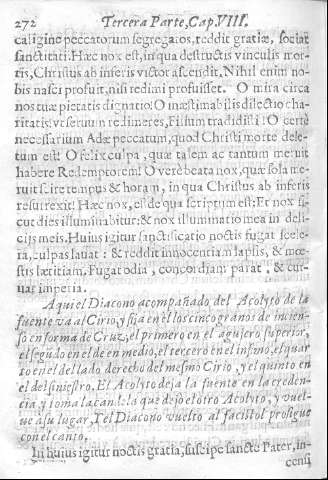 272 Tercera Parte, Cap. VIII.
caligine peccatorum segregatos, reddit gratiæ, sociat
sanctitati. Hæc nox est, in qua destructis vinculis mor-
tis, Christus ab inferis victor ascendit. Nihil enim no-
bis nasci profuit, nisi redimi profuisset. O mira circa
nos tuæ pietatis dignatio! O inæstimabilis dilectio cha-
ritatis: vt seruum redimeres, Filium tradidisti! O certè
necessarium Adæ peccatum, quod Christi morte dele-
tum est! O felix culpa, quæ talem ac tantum meruit
habere Redemptorem! O verè beata nox, quæ sola me-
ruit scire tempus & horam, in qua Christus ab inferis
resurrexit! Hæc nox, est de qua scriptum est: Et nox si-
cut dies illuminabitur: & nox illuminatio mea in deli-
cijs meis. Huius igitur sanctificatio noctis fugat scele-
ra, culpas lauat: & reddit innocentiam lapsis, & mœ-
stis lætitiam. Fugat odia, concordiam parat, & cur-
uat imperia.
Aqui el Diacono acompañado del Acolyto de la
fuente va al Cirio, y fixa en el los cinco granos de incien-
so en forma de Cruz, el primero en el agujero superior,
el segũdo en el de en medio, el tercero en el infimo, el quar
to en el del lado derecho del mesmo Cirio, y el quinto en
el del siniestro. El Acolyto deja la fuente en la creden-
cia, y toma la candela que dejo el otro Acolyto, y vuel-
ue à su lugar, Y el Diacono vuelto al facistol prosigue
con el canto.
In huius igitur noctis gratia, suscipe sancte Pater, in-
censi